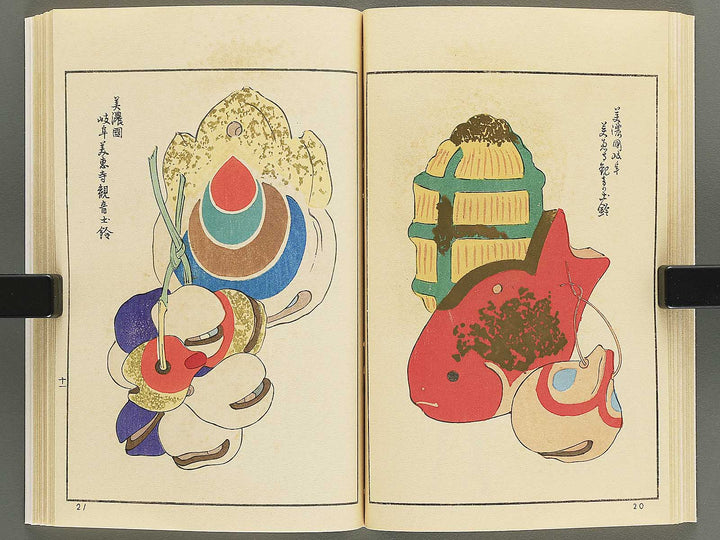 美濃國岐阜
美恵寺観音の土鈴
20
美濃國
岐阜美恵寺観音土鈴
十一
21